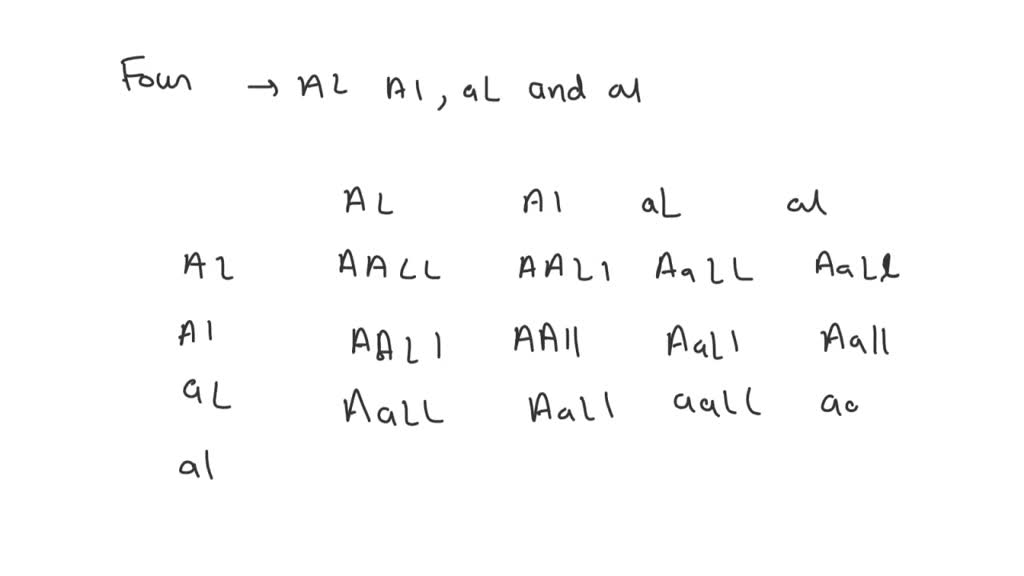 Four → AL Al, aL and al
AL Al aL al
AL AALL AALl AaLL AaLl
Al AALl AAll AaLl Aall
aL AaLL AaLl aaLL aa
al